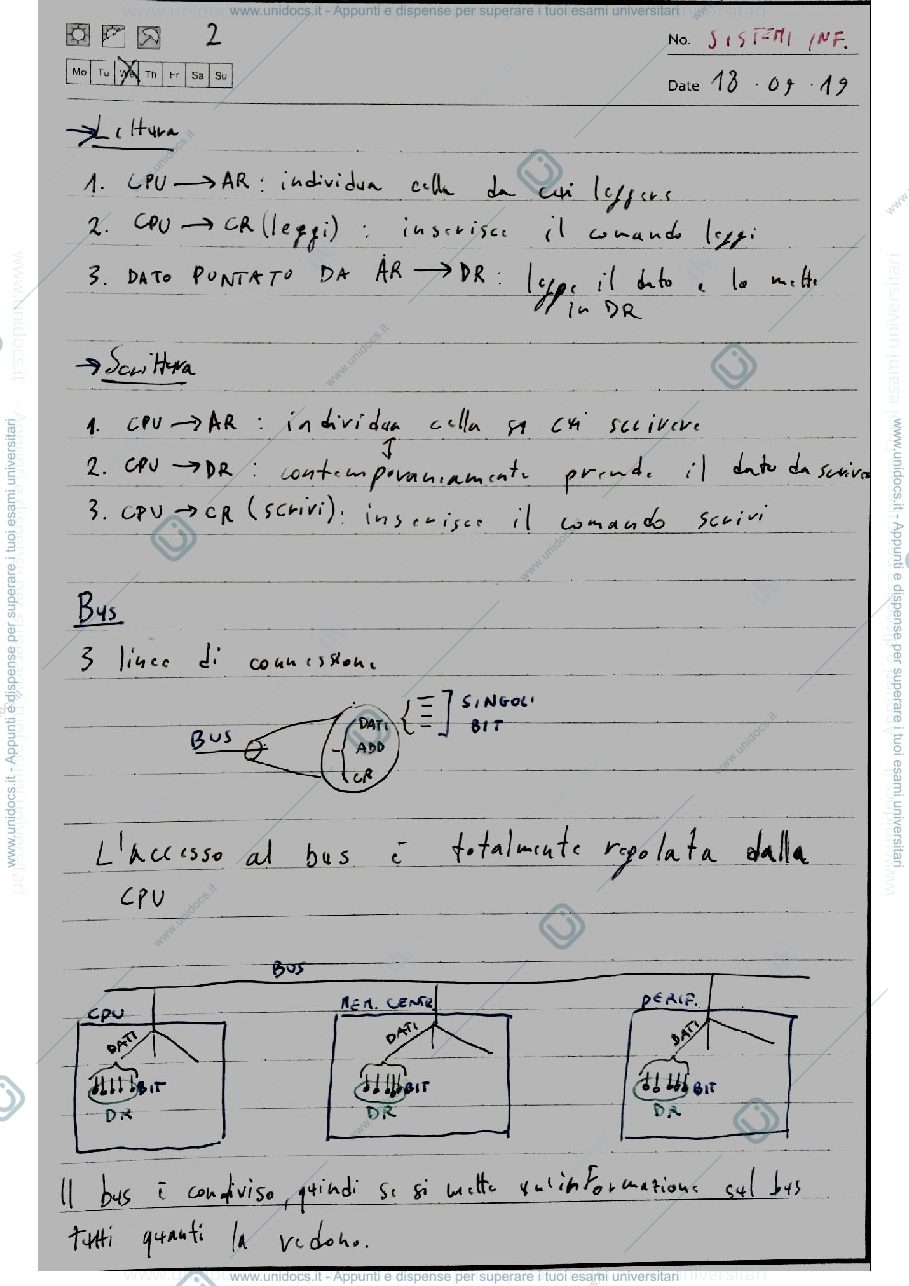 www.unidocs.it - Appunti e dispense per superare i tuoi esami universitari
2
No. SISTEMI INF.
Mo Tu We Th Fr Sa Su
Date 18 . 09 . 19
→ Lettura
1. CPU → AR : individua cella da cui leggere
2. CPU → CR (leggi) : inserisce il comando leggi
3. DATO PUNTATO DA AR → DR : legge il dato e lo mette
in DR
→ Scrittura
1. CPU → AR : individua cella su cui scrivere
2. CPU → DR : contemporaneamente prende il dato da scrivere
3. CPU → CR (scrivi) : inserisce il comando scrivi
Bus
3 linee di connessione
BUS
DATI
ADD
CR
SINGOLI
BIT
L'accesso al bus è totalmente regolata dalla
CPU
BUS
CPU
MEM. CENTR.
PERIF.
DATI
DATI
DATI
BIT
BIT
BIT
DR
DR
DR
Il bus è condiviso, quindi se si mette un'informazione sul bus
tutti quanti la vedono.
www.unidocs.it - Appunti e dispense per superare i tuoi esami universitari